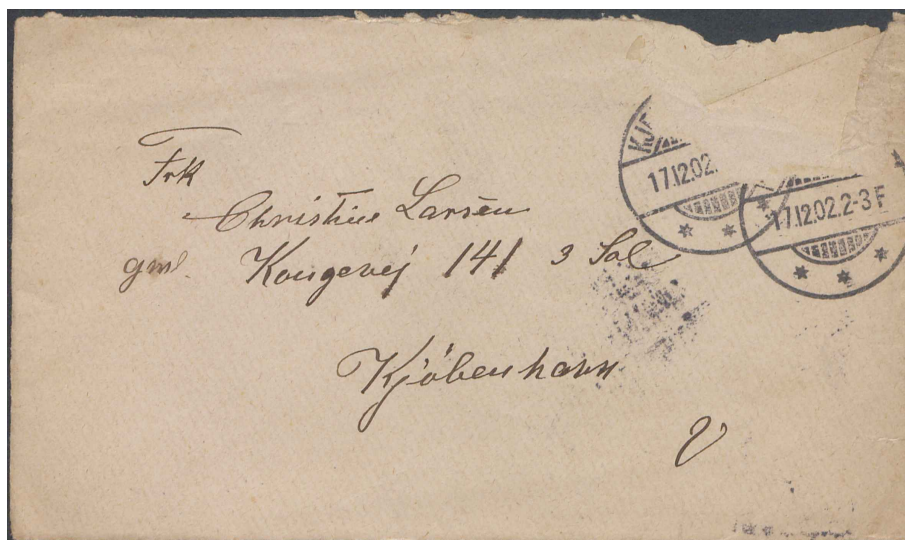 Frk
Christine Larsen
gml. Kongevej 141 3 Sal
Kjöbenhavn
V
KJØ
17.12.02.
17.12.02.2-3 F